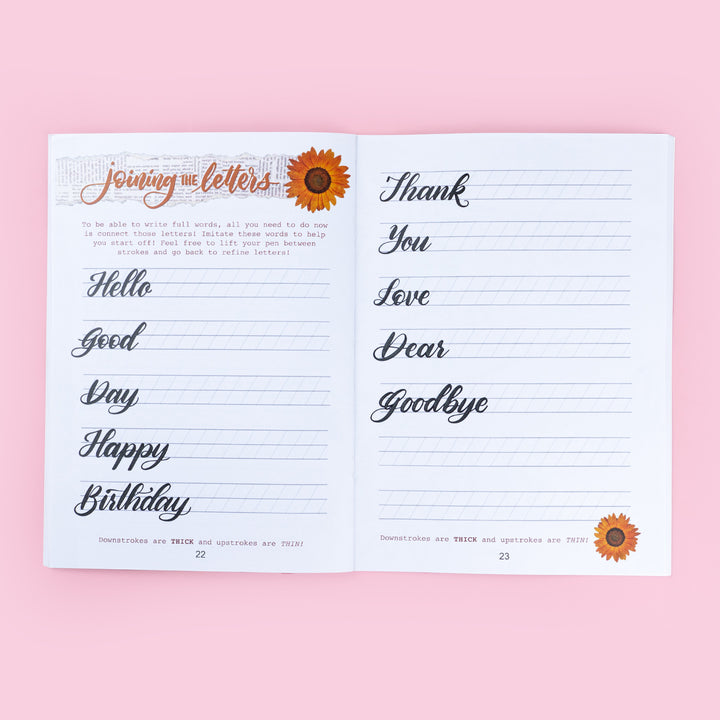 joining THE letters
To be able to write full words, all you need to do now
is connect those letters! Imitate these words to help
you start off! Feel free to lift your pen between
strokes and go back to refine letters!
Hello
Good
Day
Happy
Birthday
Downstrokes are THICK and upstrokes are THIN!
22
Thank
You
Love
Dear
Goodbye
Downstrokes are THICK and upstrokes are THIN!
23